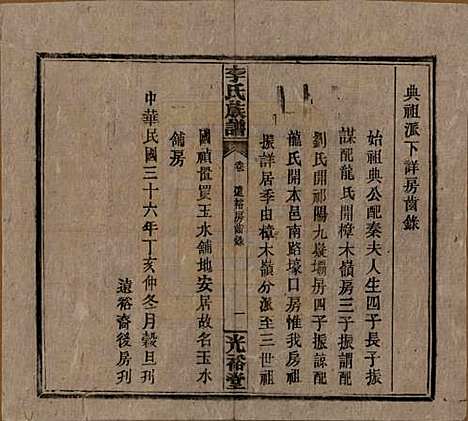 典祖派下詳房齒錄
始祖典公配秦夫人生四子長子振
謀配龍氏開樟木嶺房三子振謂配
劉氏開祁陽九凝壩房四子振諒配
龍氏開本邑南路壕口房惟我房祖
振詳居季由樟木嶺分派至三世祖
李氏族譜
卷 遠裕房齒錄
一
光裕堂
國禎置買玉水舖地安居故名玉水
舖房
中華民國三十六年丁亥仲冬月穀旦刊
遠裕裔後房刊